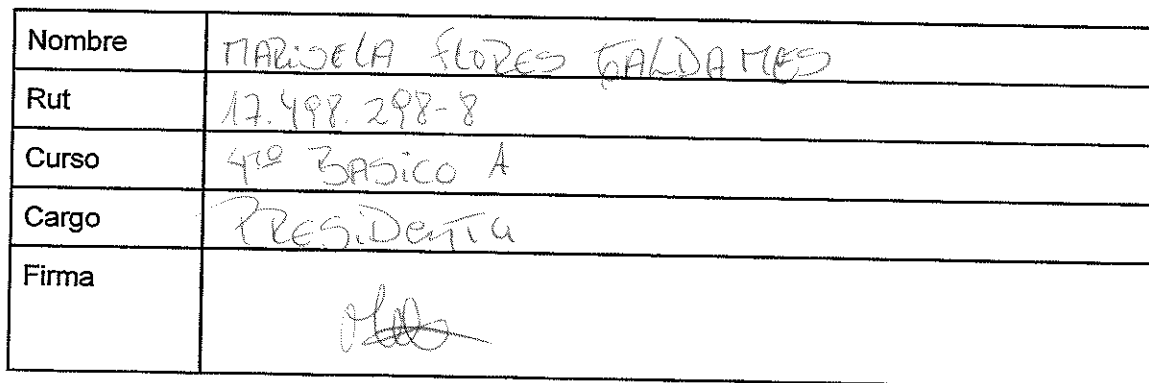 Nombre MARISELA FLORES GALDAMES
Rut 17.498.298-8
Curso 4to BASICO A
Cargo PRESIDENTA
Firma